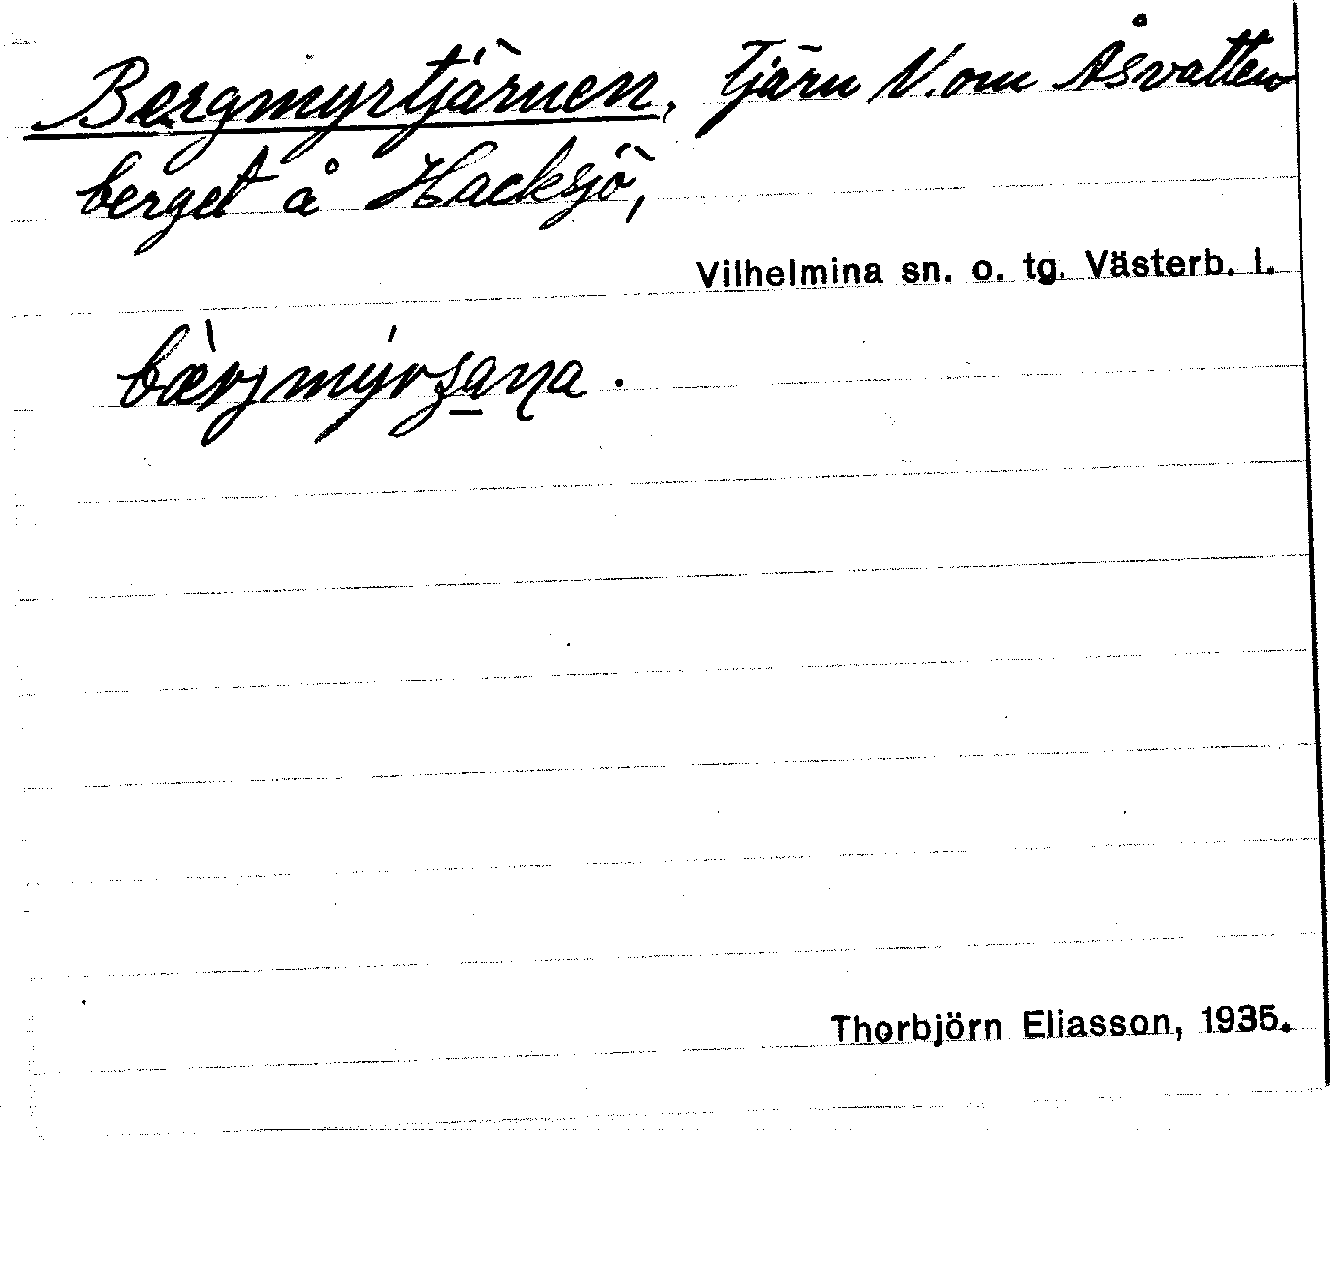 Bergmyrtjärnen, tjärn V. om Åsvatten
berget å Hacksjö,
Vilhelmina sn. o. tg. Västerb. l.
Thorbjörn Eliasson, 1935.